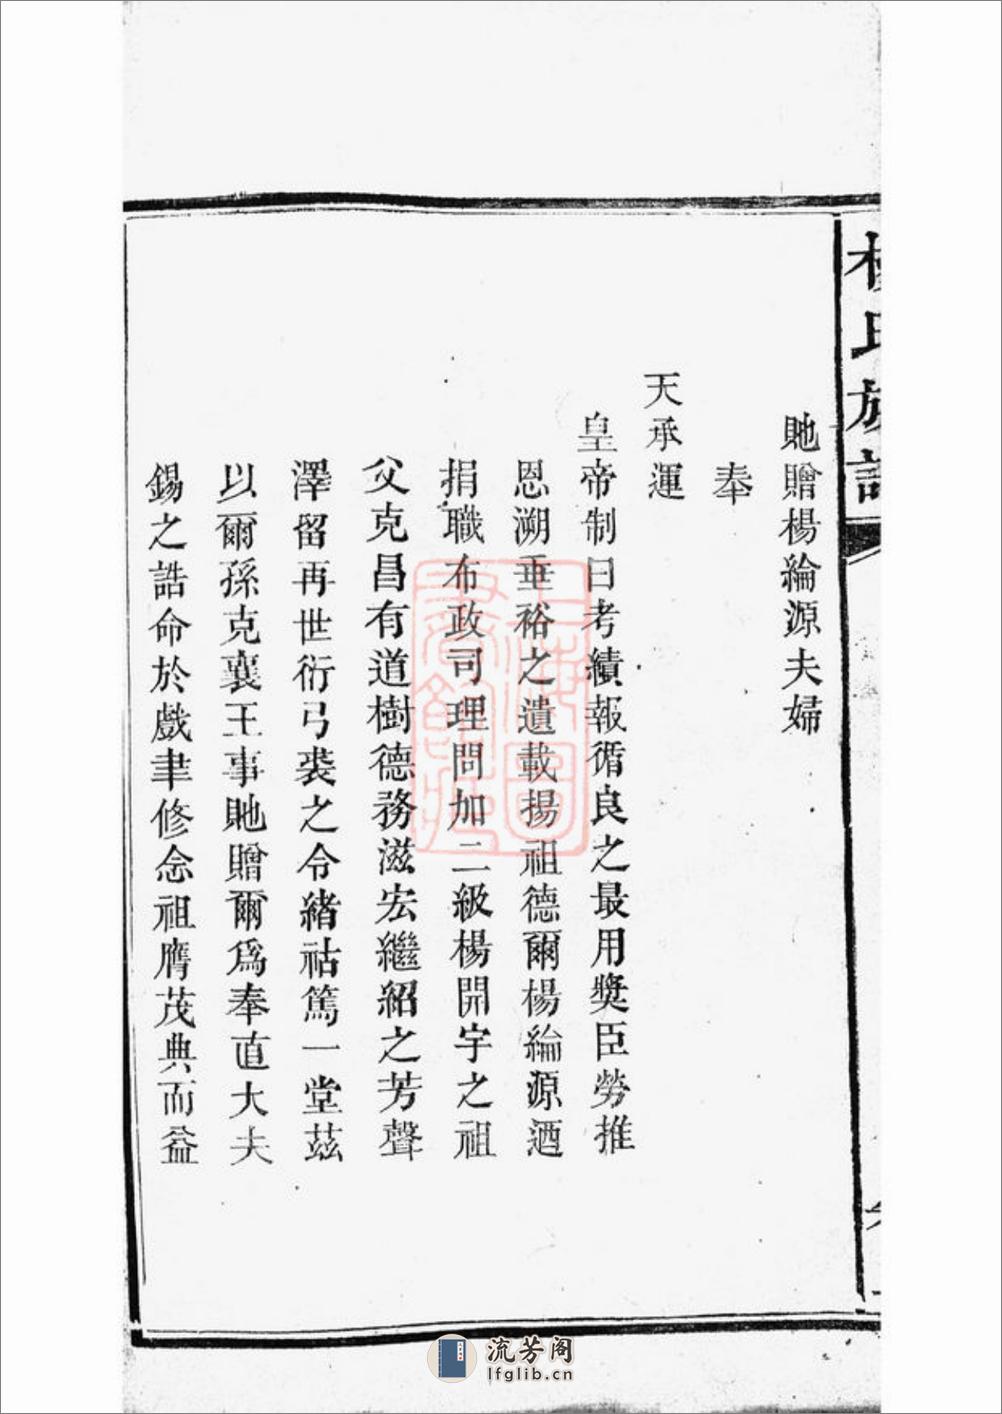 楊氏族譜
貤贈楊綸源夫婦
奉
天承運
皇帝制曰考績報循良之最用獎臣勞推
恩溯垂裕之遺載揚祖德爾楊綸源迺
捐職布政司理問加二級楊開宇之祖
父克昌有道樹德務滋宏繼紹之芳聲
澤留再世衍弓裘之令緒祜篤一堂茲
以爾孫克襄王事貤贈爾爲奉直大夫
錫之誥命於戲聿修念祖膺茂典而益
上海圖書館藏
流芳阁
lfglib.cn